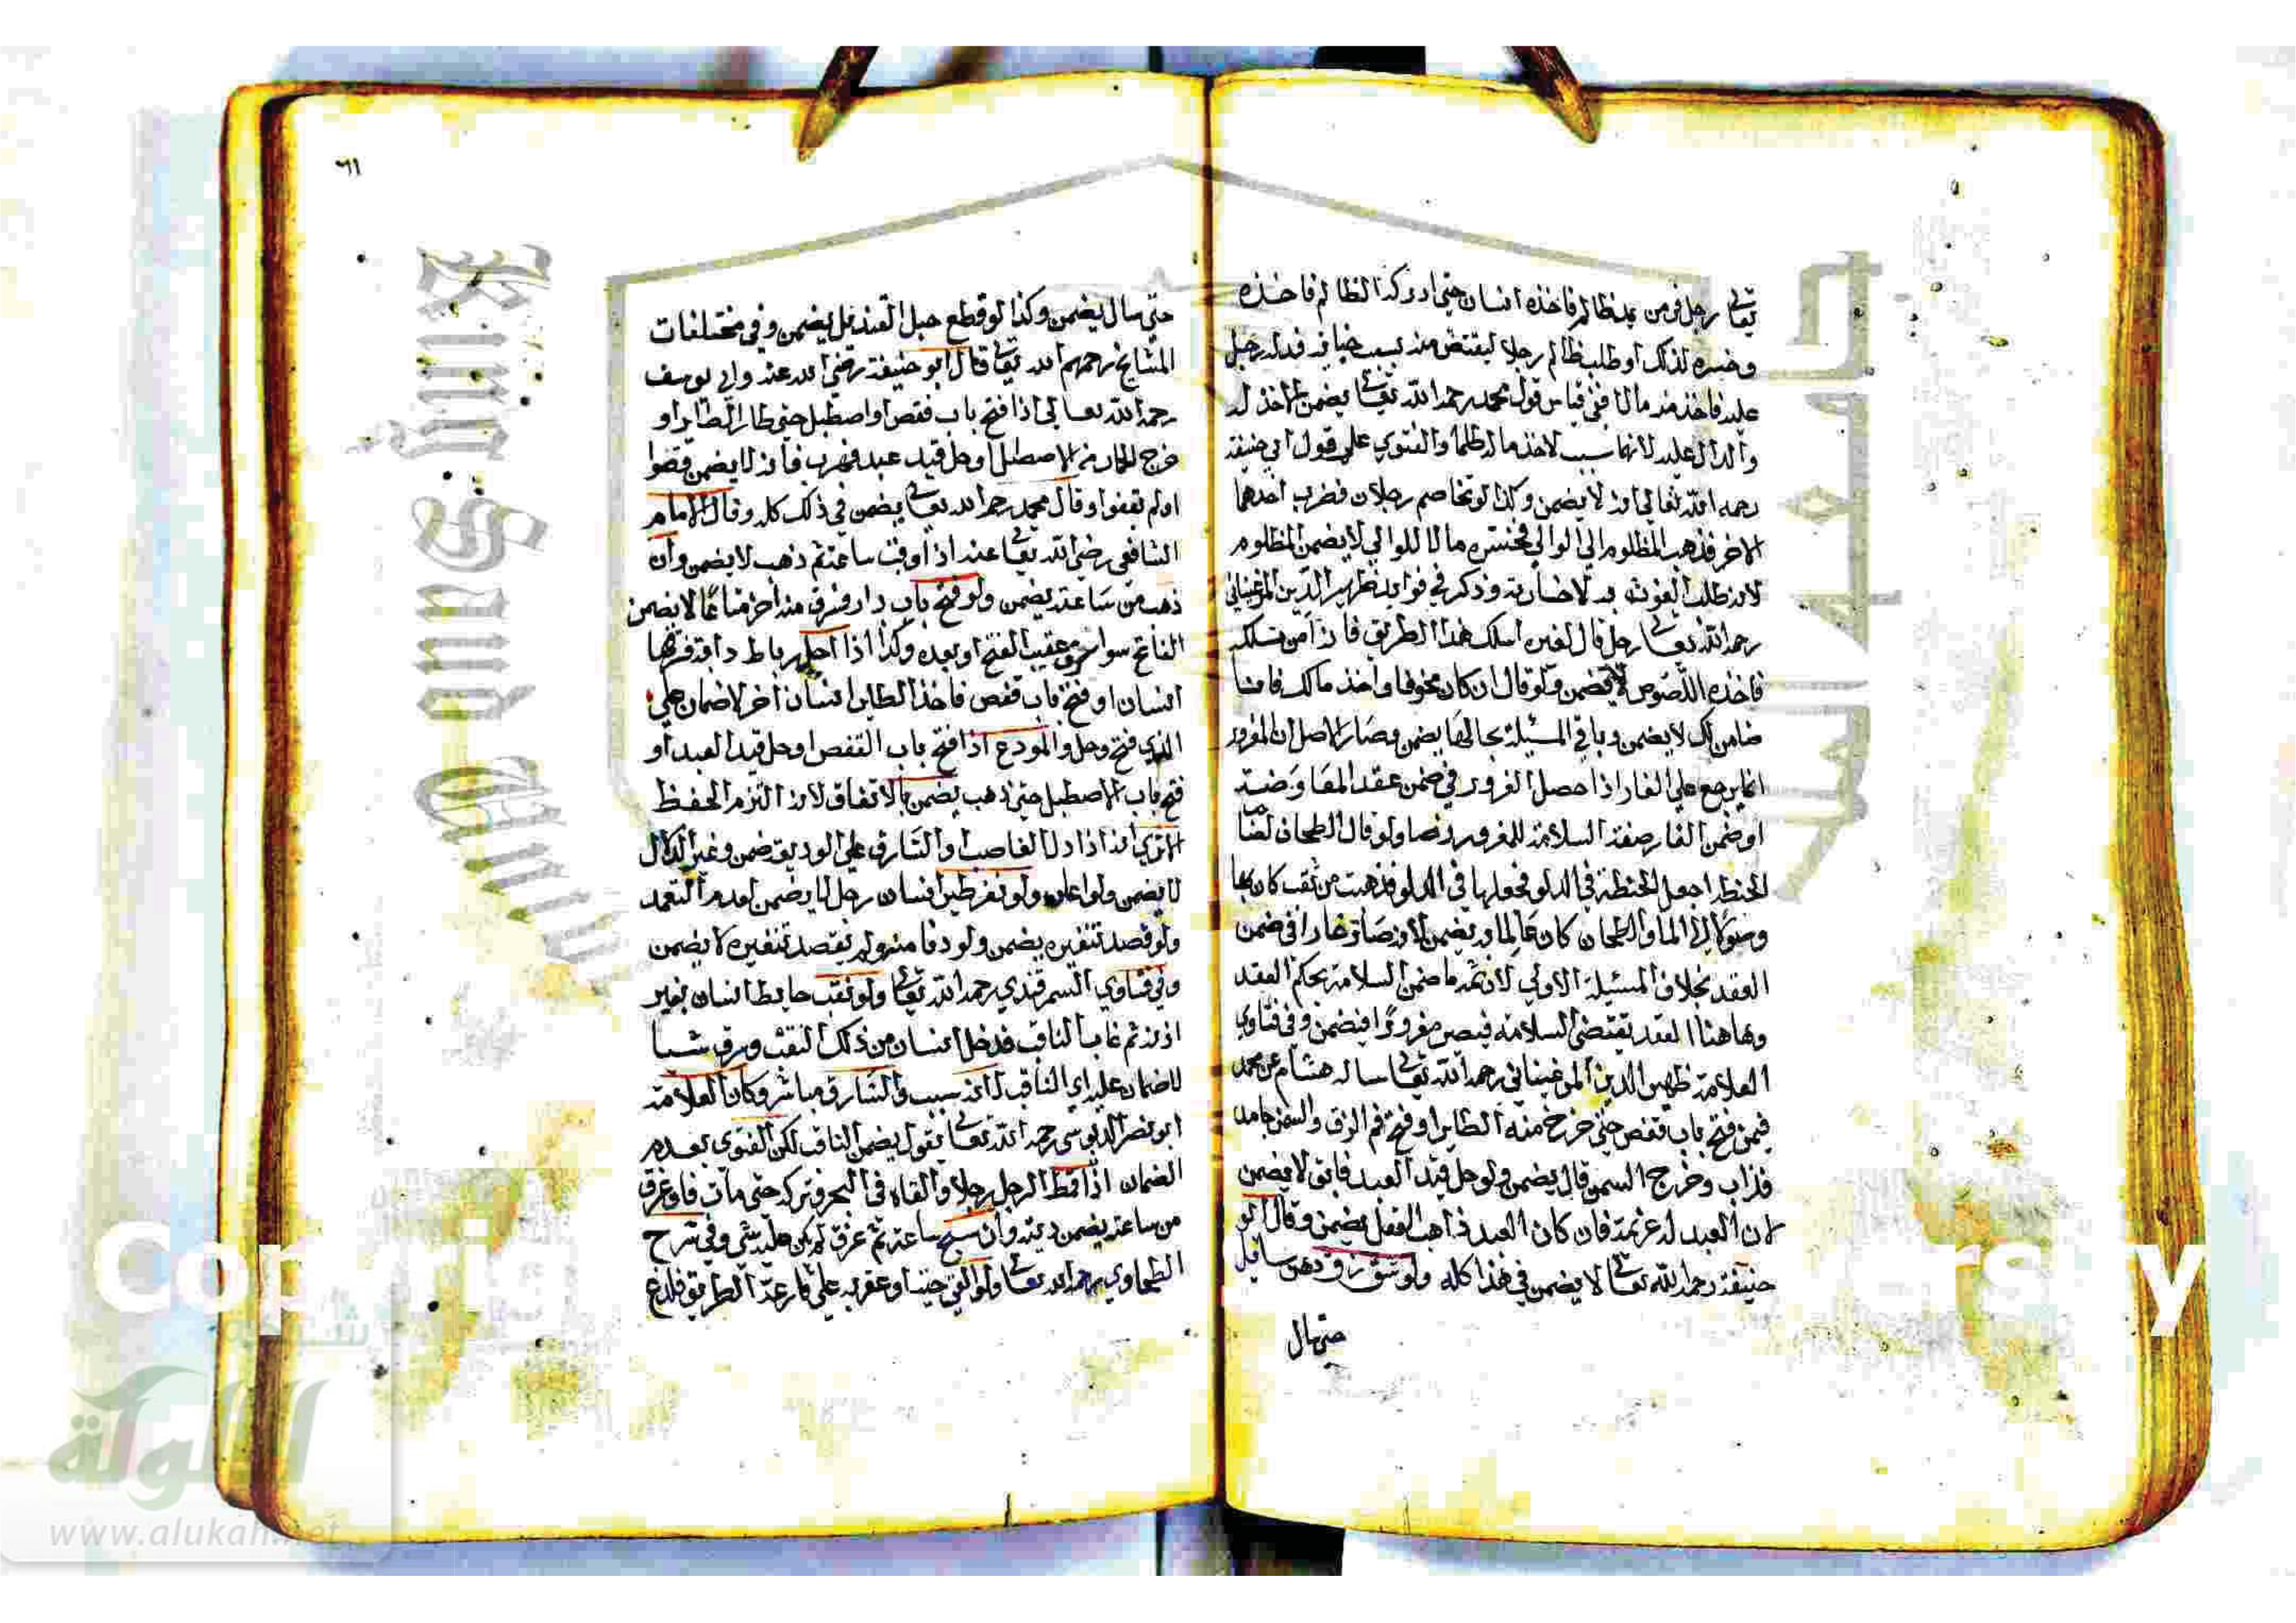 تعالى رجل فر من يد ظالم فاخذه انسان حتى ادركه الظالم فاخذه
وخسره لذلك او طلب ظالم رجلا ليقتص منه بسبب خيانة فدله رجل
عليه فاخذ منه مالا ففي قياس قول محمد رحمه الله تعالى يضمن الاخذ له
والدال عليه لانهما سبب لاخذ ماله ظلما والفتوي على قول ابي حنيفة
رحمه الله تعالى انه لا يضمن وكذا لو تخاصم رجلان فضرب احدهما
الاخر فذهب المظلوم الي الوالي فخسره مالا للوالي لا يضمن المظلوم
لانه طلب الغوث به لا خسارته وذكر في فوايد ظهير الدين المرغيناني
رحمه الله تعالى رجل قال لغيره اسلك هذا الطريق فانه آمن فسلكه
فاخذه اللصوص لا يضمن ولو قال ان كان مخوفا واخذ مالك فانا
ضامن لك لا يضمن وباقي المسئيلة بحالها يضمن وصار الاصل ان المغرور
انما يرجع علي الغار اذا حصل الغرور في ضمن عقد المعاوضة
او ضمن الغار صفة السلامة للمغرور نصا ولو قال الطحان لصاحب
الحنطة اجعل الحنطة في الدلو فجعلها في الدلو فذهبت من ثقب كان بها
وصولا الي الماء والطحان كان عالما به يضمن لانه صار غارا في ضمن
العقد بخلاف المسئيلة الاولي لان ثمة ما ضمن السلامة بحكم العقد
وهاهنا العقد يقتضي السلامة فيصير مغرورًا فيضمن وفي فتاوي
العلامة ظهير الدين المرغيناني رحمه الله تعالى ساله هشام عن محمد
فيمن فتح باب قفص حتى خرج منه الطاير او فتح فم الزق والسمن جامد
فذاب وخرج السمن قال يضمن ولو حل قيد العبد فابق لا يضمن
لان العبد له عزيمة فان كان العبد ذاهب العقل يضمن وقال ابو
حنيفة رحمه الله تعالى لا يضمن في هذا كله ولو شق زق دهن سايل
حتى سال
٦١
حتى سال يضمن وكذا لو قطع حبل القنديل يضمن وفي مختلفات
المشايخ رحمهم الله تعالى قال ابو حنيفة رضي الله عنه وابي يوسف
رحمه الله تعالى اذا فتح باب قفص او اصطبل حتى طار الطاير او
خرج الحمار من الاصطبل او حل قيد عبد فهرب فانه لا يضمن وقفوا
او لم يقفوا وقال محمد رحمه الله تعالى يضمن في ذلك كله وقال الامام
الشافعي رضي الله تعالى عنه اذا وقف ساعة ثم ذهب لا يضمن وان
ذهب من ساعته يضمن ولو فتح باب دار فسرق منه اخر متاعًا لا يضمن
الفاتح سوا سرق عقيب الفتح او بعده وكذا اذا حل رباط دابة فسرقها
انسان او فتح باب قفص فاخذ الطاير انسان آخر لا ضمان على
الذي فتح وحل والمودع اذا فتح باب القفص او حل قيد العبد او
فتح باب الاصطبل حتى ذهب يضمن بالاتفاق لانه التزم الحفظ
الا تري انه اذا دل الغاصب او السارق علي الوديعة ضمن وغيره الدال
لا يضمن ولو نفر طير انسان رجل لا يضمن لعدم التعمد
ولو قصد تنفيره يضمن ولو دنا منه ولم يقصد تنفيره لا يضمن
وفي فتاوي السمرقندي رحمه الله تعالى ولو نقب حايط انسان بغير
اذنه ثم غاب الناقب فدخل انسان من ذلك النقب وسرق شيا
لا ضمان عليه اي الناقب لانه سبب والسارق مباشر وكان العلامة
ابو نصر الدبوسي رحمه الله تعالى يقول يضمن الناقب لكن الفتوى بعدم
الضمان اذا قمط الرجل رجلا والقاه في البحر فتركه حتى مات فلو غرق
من ساعته يضمن ديته وان سبح ساعة ثم غرق لم يكن عليه شي وفي شرح
الطحاوي رحمه الله تعالى ولو القى حية او عقربا على قارعة الطريق فلدغ
King Saud
Copyrig
rsity
شبكة
الألوكة
www.alukah.net